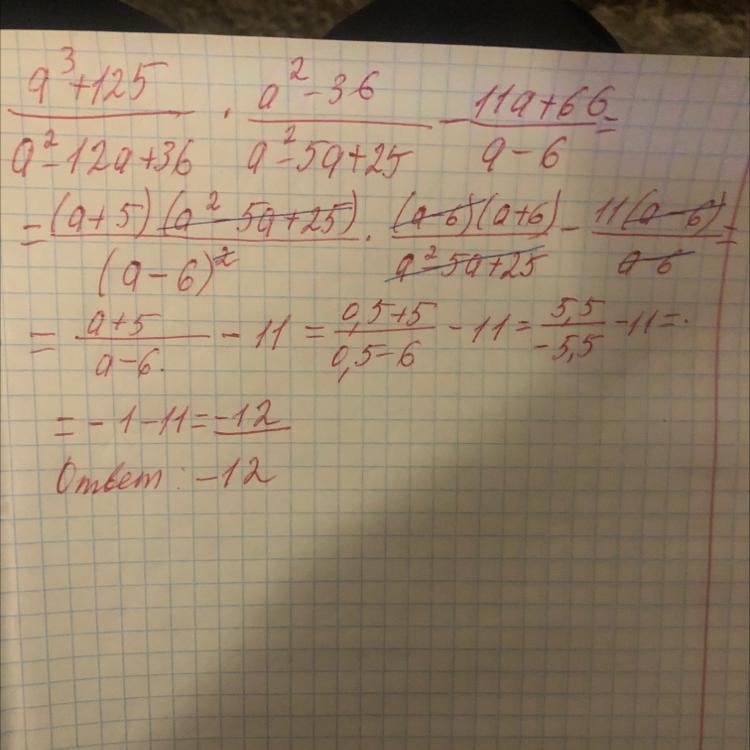 (a³+125)/(a²-12a+36) · (a²-36)/(a²-5a+25) - (11a+66)/(a-6) =
= (a+5)(a²-5a+25)/(a-6)² · (a-6)(a+6)/(a²-5a+25) - 11(a-6)/(a-6) =
= (a+5)/(a-6) - 11 = (0,5+5)/(0,5-6) - 11 = 5,5/-5,5 - 11 =
= - 1 - 11 = -12
Ответ: -12